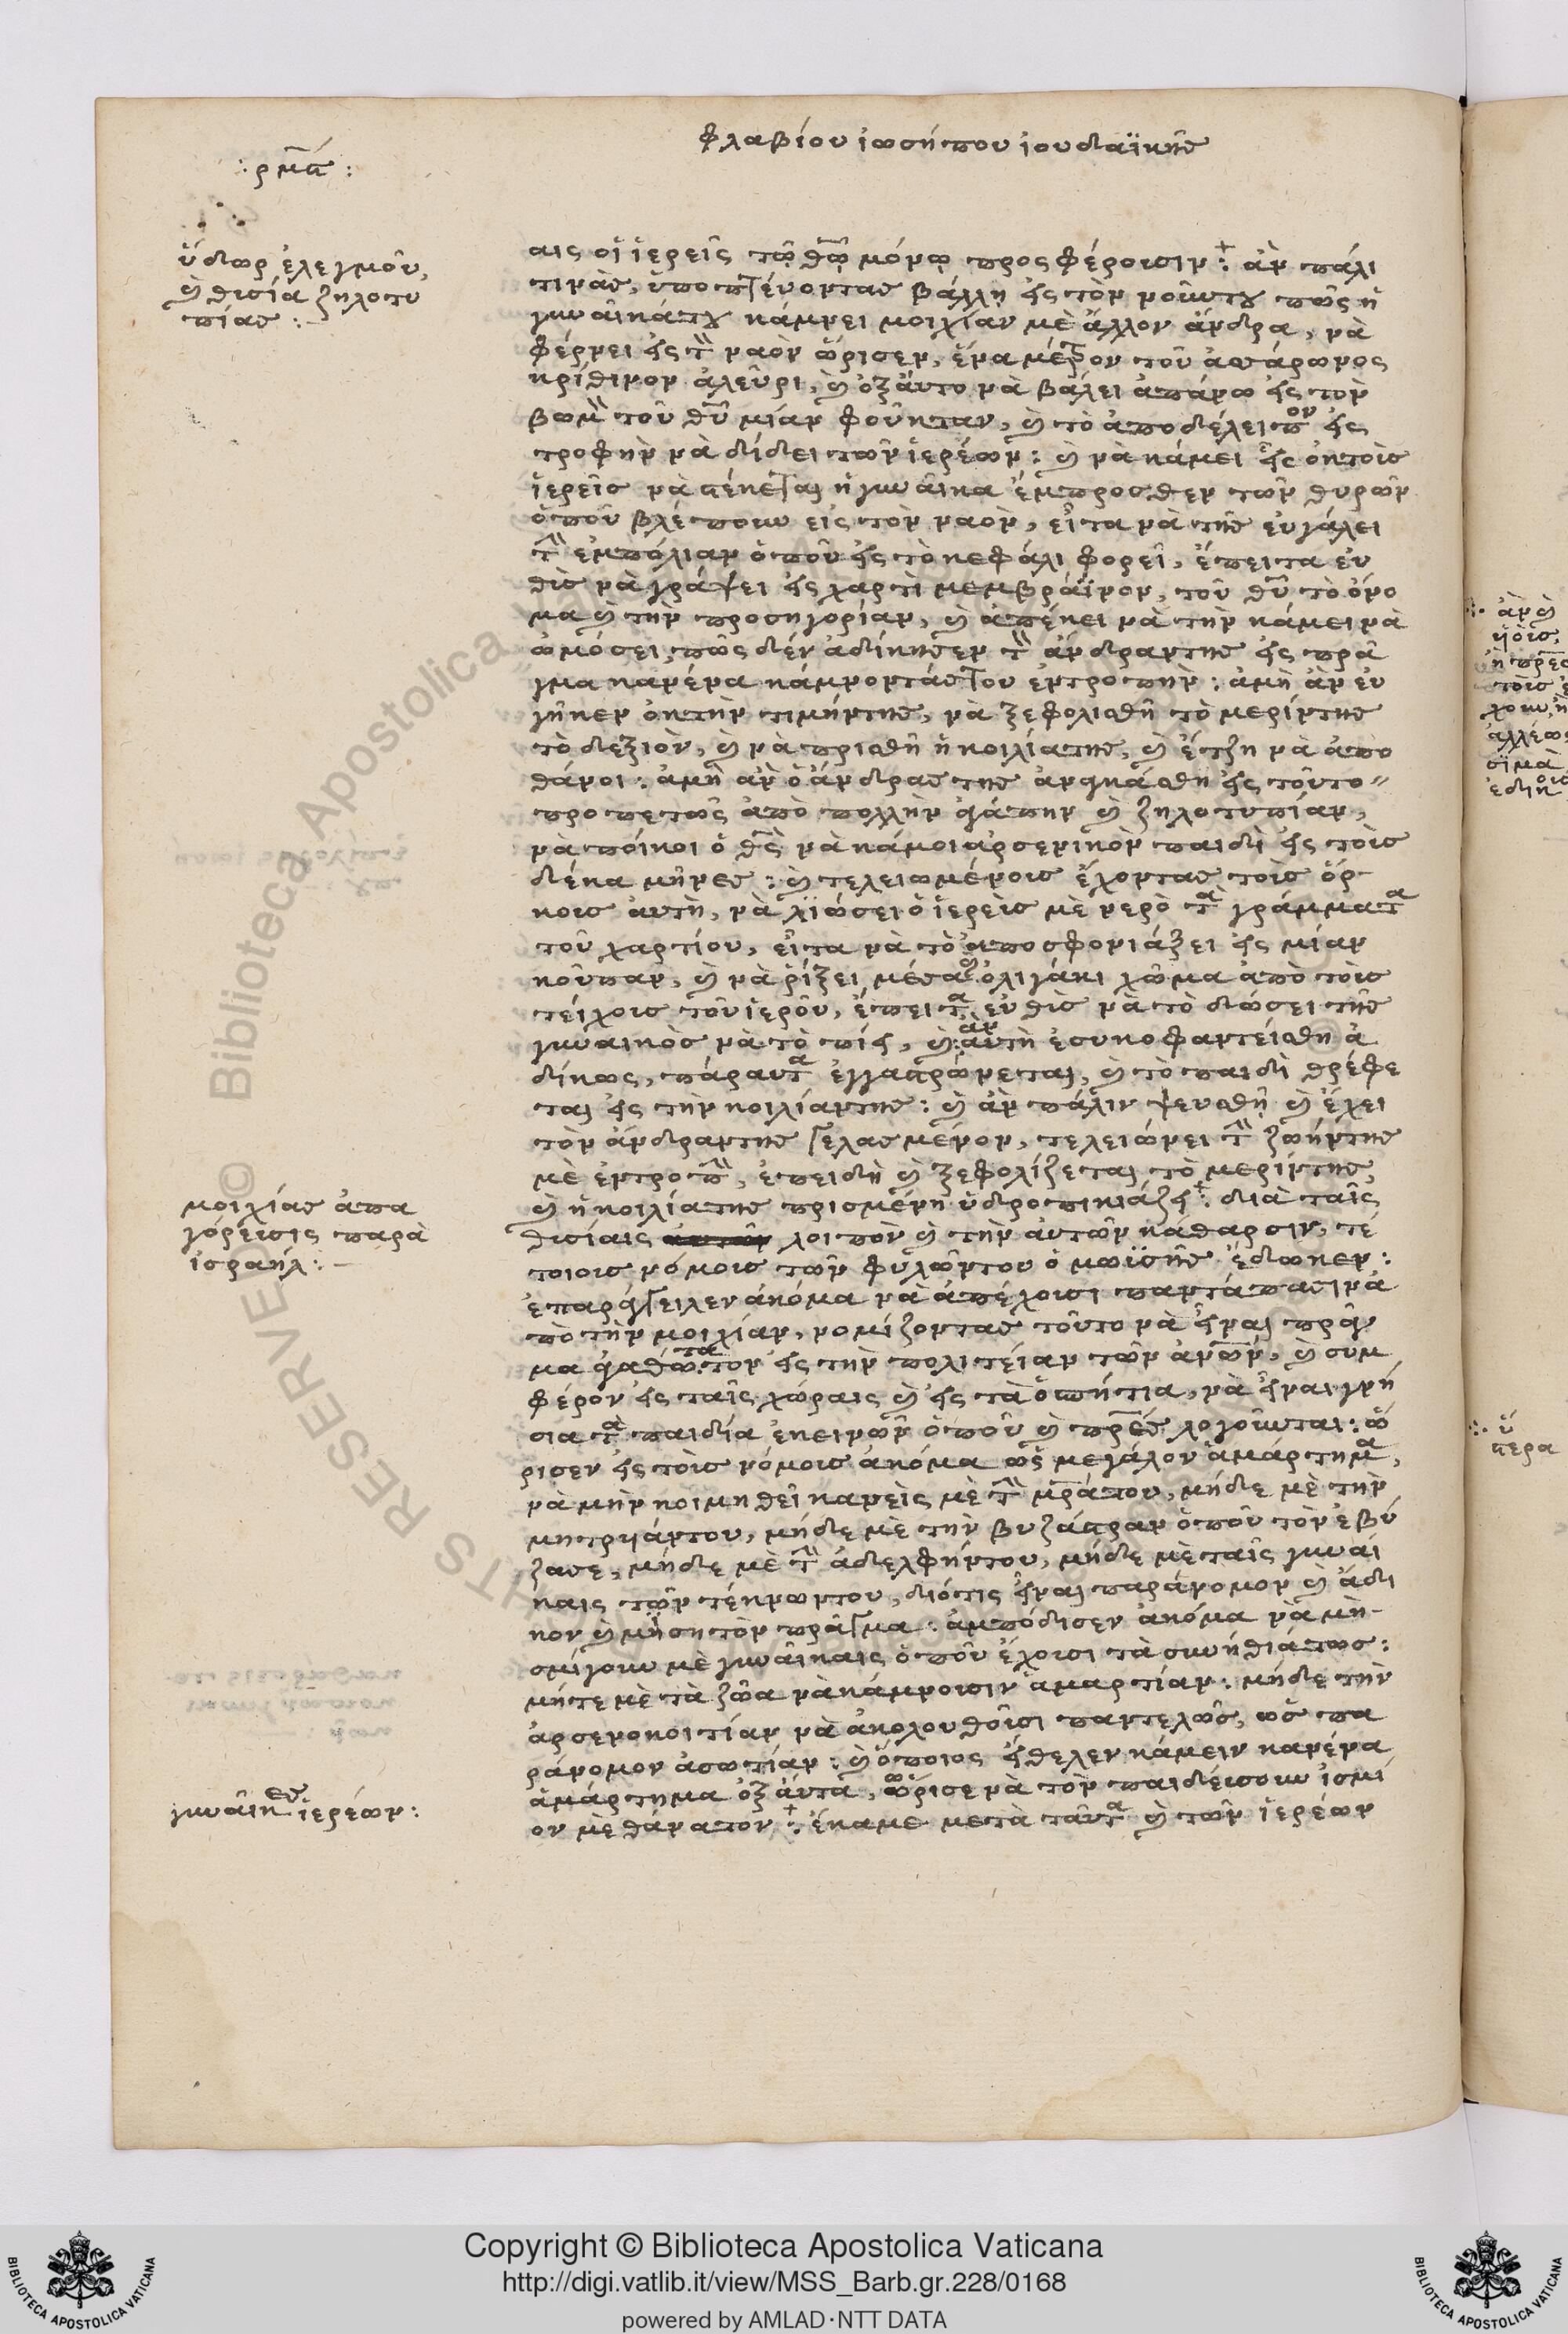 φλαβίου ἰωσήπου ἰουδαϊκῆσ
: ρμα :
ὕδωρ ἐλεγμοῦ,
ϗ θυσία ζηλοτυ
πίασ : –
αις οἱ ἱερεῖς τῷ θῷ μόνῳ προςφέρουσιν : ἂν πάλι
τινὰσ, ὑποπτεύοντασ βάλλη εἰς τὸν νοῦντου πῶς ἡ
γυναῖκάτου κάμνει μοιχίαν μὲ ἄλλον ἄνδρα, νὰ
φέρνει εἰς τὸν ναὸν ὥρισεν, ἕνα μέτρον τοῦ ἀσάρωνος
κρίθινον ἀλεῦρι, ϗ ὀξάυτο νὰ βάλει ἀπάνω εἰς τὸν
βωμὸν τοῦ θῦ μίαν φοῦκταν, ϗ τὸ ἀποδέλειπον εἰς
τροφὴν νὰ δίδει τῶν ἱερέων : ϗ νὰ κάμει εἷς ὀκτοὶσ
ἱερεῖσ νὰ στέκεται ἡ γυναῖκα ἔμπροσθεν τῶν θυρῶν
ὁποῦ βλέπουν εἰς τὸν ναὸν, εἶτα νὰ τῆσ εὐγάλει
τὴν ἐμπόλιαν ὁποῦ εἰς τὸ κεφάλι φορεῖ, ἔπειτα ἐυ
θὶσ νὰ γράψει εἰς χαρτὶ μεμβράϊνον, τοῦ θῦ τὸ ὄνο
μα ϗ τὴν προσηγορίαν, ϗ ἀπέκει νὰ τὴν κάμει νὰ
ὠμόσει, πῶς δὲν ἀδίκησεν τὸν ἄνδραντησ εἰς πρᾶ
γμα κανένα κάμνοντάστου ἐντροπὴν : ἀμὴ ἂν ἐυ
γῆκεν ὀκτὴν τιμήντησ, νὰ ξεφολιαθῆ τὸ μερίντησ
τὸ δεξιὸν, ϗ νὰ πρισθῆ ἡ κοιλίατησ, ϗ ἔτζη νὰ ἀπο
θάνοι : ἀμὴ ἂν ὁ ἄνδρασ τησ ἀρφηάσθη εἰς τοῦτο
προπετῶς ἀπὸ πολλὴν ἀγάπην ϗ ζηλοτυπίαν,
νὰ ποίκοι ὁ θὸς νὰ κάμοι ἀρσενικὸν παιδὶ εἰς τοὶσ
δέκα μῆνεσ : ϗ τελειωμένουσ ἔχοντασ τοὶσ ὅρ
κουσ ἀυτὴ, νὰ λϊώσει ὁ ἱερεὶσ μὲ νερὸ τὰ γράμματα
τοῦ χαρτίου, εἶτα νὰ τὸ ἀποσφονιάξει εἰς μίαν
κοῦπαν, ϗ νὰ ῥίξει μέσα ὀλιγάκι χῶμα ἀπὸ τοὶσ
τείχουσ τοῦ ἱεροῦ, ἔπειτα ἐυθὶσ νὰ τὸ δώσει τῆσ
γυναικὸσ νὰ τὸ πίει, ϗ : ἂν ἀυτὴ ἐσυκοφαντείσθη ἀ
δίκως, πάραυτα ἐγγαστρώνεται, ϗ τὸ παιδὶ θρέφε
ται εἰς τὴν κοιλίαντησ : ϗ ἂν πάλιν ψευσθῆ ϗ ἔχει
τὸν ἄνδραντησ γελασμένον, τελειώνει τὴν ζωήντησ
μὲ ἐντροπὴν, ἐπειδὴ ϗ ξεφολίζεται τὸ μερίντησ
ϗ ἡ κοιλίατησ πρισμένη ὑδροπικιάζει : διὰ ταῖς
θυσίαις λοιπὸν ϗ τὴν ἀυτῶν κάθαρσιν, τέ
τοιουσ νόμουσ τῶν φυλῶντου ὁ μωϊσῆσ ἔδωκεν :
ἐπαράγγειλεν ἀκόμα νὰ ἀπέχουσι παντάπασιν ἀ
πὸ τὴν μοιχίαν, νομίζοντασ τοῦτο νὰ εἶναι πρᾶγ
μα ἀγαθώτατον εἰς τὴν πολιτείαν τῶν ἀνων, ϗ συμ
φέρον εἰς ταῖς χώραις ϗ εἰς τὰ ὀσπήτια, νὰ εἶναι γνή
σια τὰ παιδία ἐκεινῶν ὁποῦ ϗ πρεσ λογοῦνται : ὥ
ρισεν εἰς τοὶσ νόμουσ ἀκόμα ὡς μεγάλον ἁμάρτημα,
νὰ μὴν κοιμηθεῖ κανεὶς μὲ τὴν μρατου, μήδε μὲ τὴν
μητρηάντου, μήδε μὲ τὴν βυζάστραν ὁποῦ τὸν ἐβύ
ζασε, μήδε μὲ τὴν ἀδελφήντου, μήδε μὲ ταῖς γυναί
καις τῶν τέκνωντου, διότις εἶναι παράνομον ϗ ἄδι
κον ϗ μισητὸν πρᾶγμα : ἀμπόδισεν ἀκόμα νὰ μὴ
σμίγουν μὲ γυναῖκαις ὁποῦ ἔχουσι τὰ συνήθιάτωσ :
μήτε μὲ τὰ ζῶα νὰ κάμνουσιν ἁμαρτίαν : μήδε τὴν
ἀρσενοκοιτίαν νὰ ἀκολουθοῦσι παντελῶσ, ὡσ πα
ράνομον ἀσωτίαν : ϗ ὅποιος ἤθελεν κάμειν κανένα
ἁμάρτημα ὀξ ἀυτὰ, ὥρισε νὰ τὸν παιδεύσουν ἰσμί
ον μὲ θάνατον : ἔκαμε μετὰ ταῦτα ϗ τῶν ἱερέων
μοιχίασ ἀπα
γόρευσις παρὰ
ἰσραήλ : –
γυναῖκεσ ἱερέων :
Copyright © Biblioteca Apostolica Vaticana
http://digi.vatlib.it/view/MSS_Barb.gr.228/0168
powered by AMLAD·NTT DATA
BIBLIOTECA APOSTOLICA VATICANA
BIBLIOTECA APOSTOLICA VATICANA